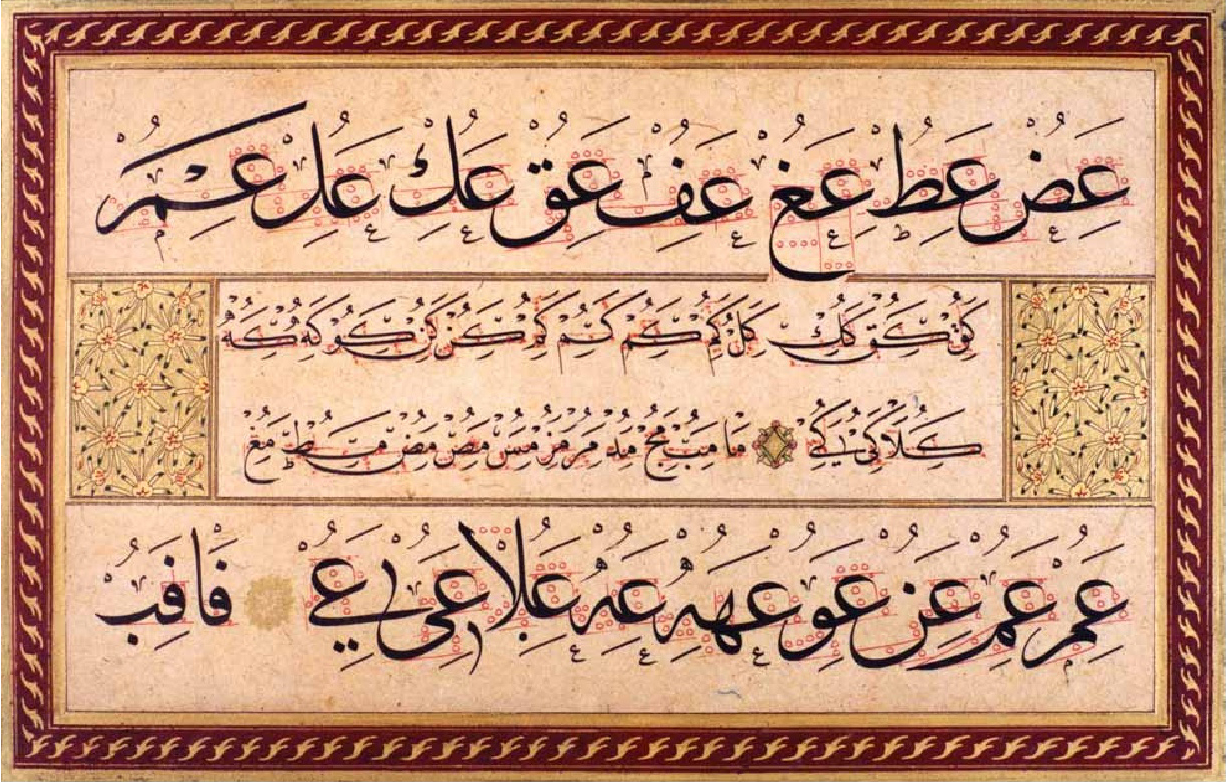 عض عط عغ عف عق عك عل عم
كق كق كك كل كم كم كم كم كن كن كو كه كه
كلا كى كى ما مب مج مد مر مر مس مص مض مط مغ
عم عم عن عو عه عه علا عى عى فا فب